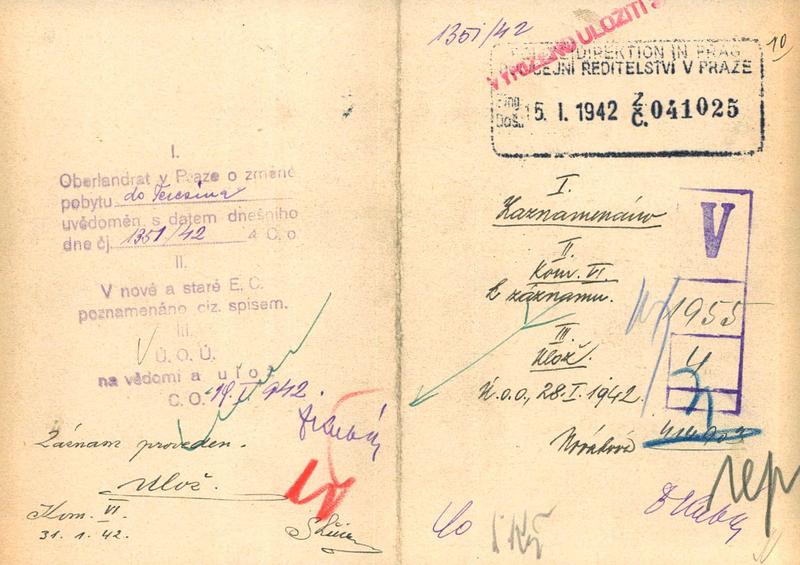 I.
Oberlandrat v Praze o změně
pobytu do Terezína
uvědoměn s datem dnešního
dne čj. 1351/42 4 C. o.
II.
V nové a staré E. C.
poznamenáno ciz. spisem.
III.
Ú. O. Ú.
na vědomí a
C. O. 1942
Záznam proveden.
Ulož.
Kom. VI
31. 1. 42.
1351/42
10
VYŘÍZENO ULOŽITI
DIREKTION IN PRAG
ŘEDITELSTVÍ V PRAZE
5. I. 1942 Z Č. 041025
I.
Zaznamenáno
II.
Kom. VI.
k záznamu.
III.
Ulož.
Ú.o.o., 28.I.1942.
Nováková
V
1955
4
rep